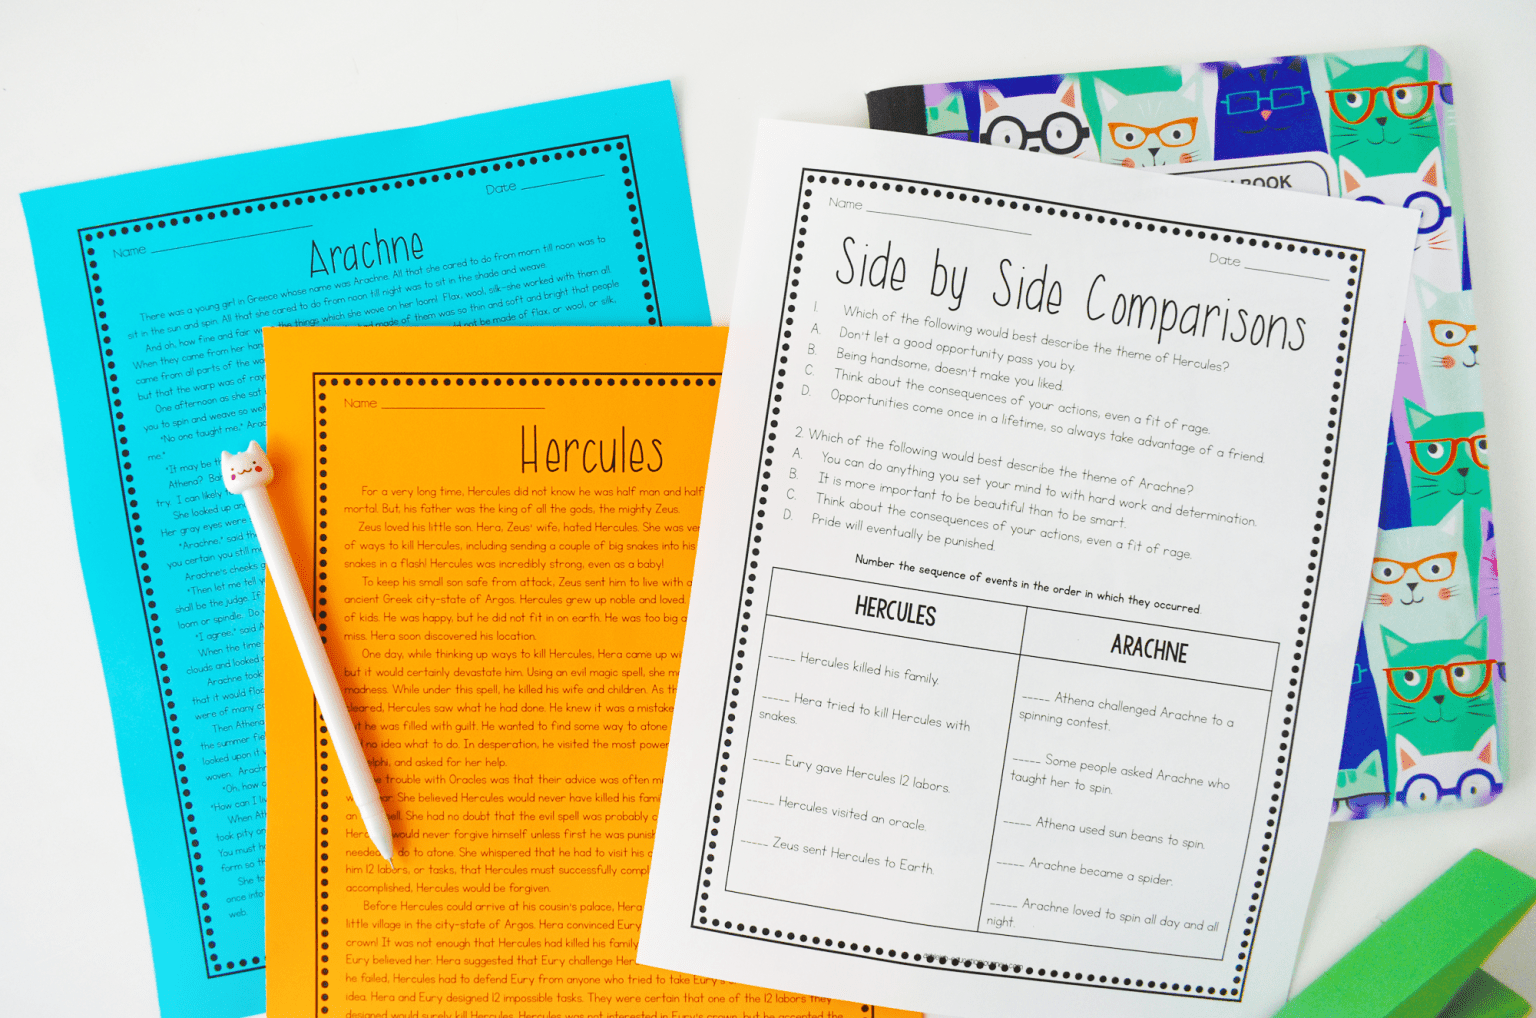 Name
Date
Arachne
There was a young girl in Greece whose name was Arachne. All that she cared to do from morn till noon was to
sit in the sun and spin. All that she cared to do from noon till night was to sit in the shade and weave.
And oh, how fine and fair the things which she wove on her loom! Flax, wool, silk-she worked with them all.
When they came from her han made of them was so thin and soft and bright that people
came from all parts of the wo not be made of flax, or wool, or silk,
but that the warp was of ray
One afternoon as she sat
you to spin and weave so well
"No one taught me," Arac
me."
"It may be th
Athena? Bah
try, I can likely
She looked up an
Her gray eyes were
"Arachne," said th
you certain you still m
Arachne's cheeks g
"Then let me tell y
shall be the judge. If
loom or spindle. Do
"I agree," said A
When the time
clouds and looked
Arachne took
that it would floa
were of many co
Then Athena
the summer fie
looked upon it
woven. Arachn
"Oh, how c
"How can I liv
When Ath
took pity on
You must h
form so th
She to
once into
web.
Name
Hercules
For a very long time, Hercules did not know he was half man and half
mortal. But, his father was the king of all the gods, the mighty Zeus.
Zeus loved his little son. Hera, Zeus' wife, hated Hercules. She was ver
of ways to kill Hercules, including sending a couple of big snakes into his
snakes in a flash! Hercules was incredibly strong, even as a baby!
To keep his small son safe from attack, Zeus sent him to live with a
ancient Greek city-state of Argos. Hercules grew up noble and loved.
of kids. He was happy, but he did not fit in on earth. He was too big a
miss. Hera soon discovered his location.
One day, while thinking up ways to kill Hercules, Hera came up wi
but it would certainly devastate him. Using an evil magic spell, she m
madness. While under this spell, he killed his wife and children. As th
cleared, Hercules saw what he had done. He knew it was a mistake
but he was filled with guilt. He wanted to find some way to atone
no idea what to do. In desperation, he visited the most power
Delphi, and asked for her help.
trouble with Oracles was that their advice was often mi
She believed Hercules would never have killed his fami
an spell. She had no doubt that the evil spell was probably c
Herc would never forgive himself unless first he was punish
needed to do to atone. She whispered that he had to visit his c
him 12 labors, or tasks, that Hercules must successfully compl
accomplished, Hercules would be forgiven.
Before Hercules could arrive at his cousin's palace, Hera
little village in the city-state of Argos. Hera convinced Eury
crown! It was not enough that Hercules had killed his family
Eury believed her. Hera suggested that Eury challenge Her
he failed, Hercules had to defend Eury from anyone who tried to take Eury's
idea. Hera and Eury designed 12 impossible tasks. They were certain that one of the 12 labors they
designed would surely kill Hercules. Hercules was not interested in Eury's crown, but he accepted the
BOOK
Name
Date
Side by Side Comparisons
1. Which of the following would best describe the theme of Hercules?
A. Don't let a good opportunity pass you by.
B. Being handsome, doesn't make you liked.
C. Think about the consequences of your actions, even a fit of rage.
D. Opportunities come once in a lifetime, so always take advantage of a friend.
2. Which of the following would best describe the theme of Arachne?
A. You can do anything you set your mind to with hard work and determination.
B. It is more important to be beautiful than to be smart.
C. Think about the consequences of your actions, even a fit of rage.
D. Pride will eventually be punished.
Number the sequence of events in the order in which they occurred
HERCULES
_____ Hercules killed his family.
_____ Hera tried to kill Hercules with
snakes.
_____ Eury gave Hercules 12 labors.
_____ Hercules visited an oracle.
_____ Zeus sent Hercules to Earth.
ARACHNE
_____ Athena challenged Arachne to a
spinning contest.
_____ Some people asked Arachne who
taught her to spin.
_____ Athena used sun beans to spin.
_____ Arachne became a spider.
_____ Arachne loved to spin all day and all
night.